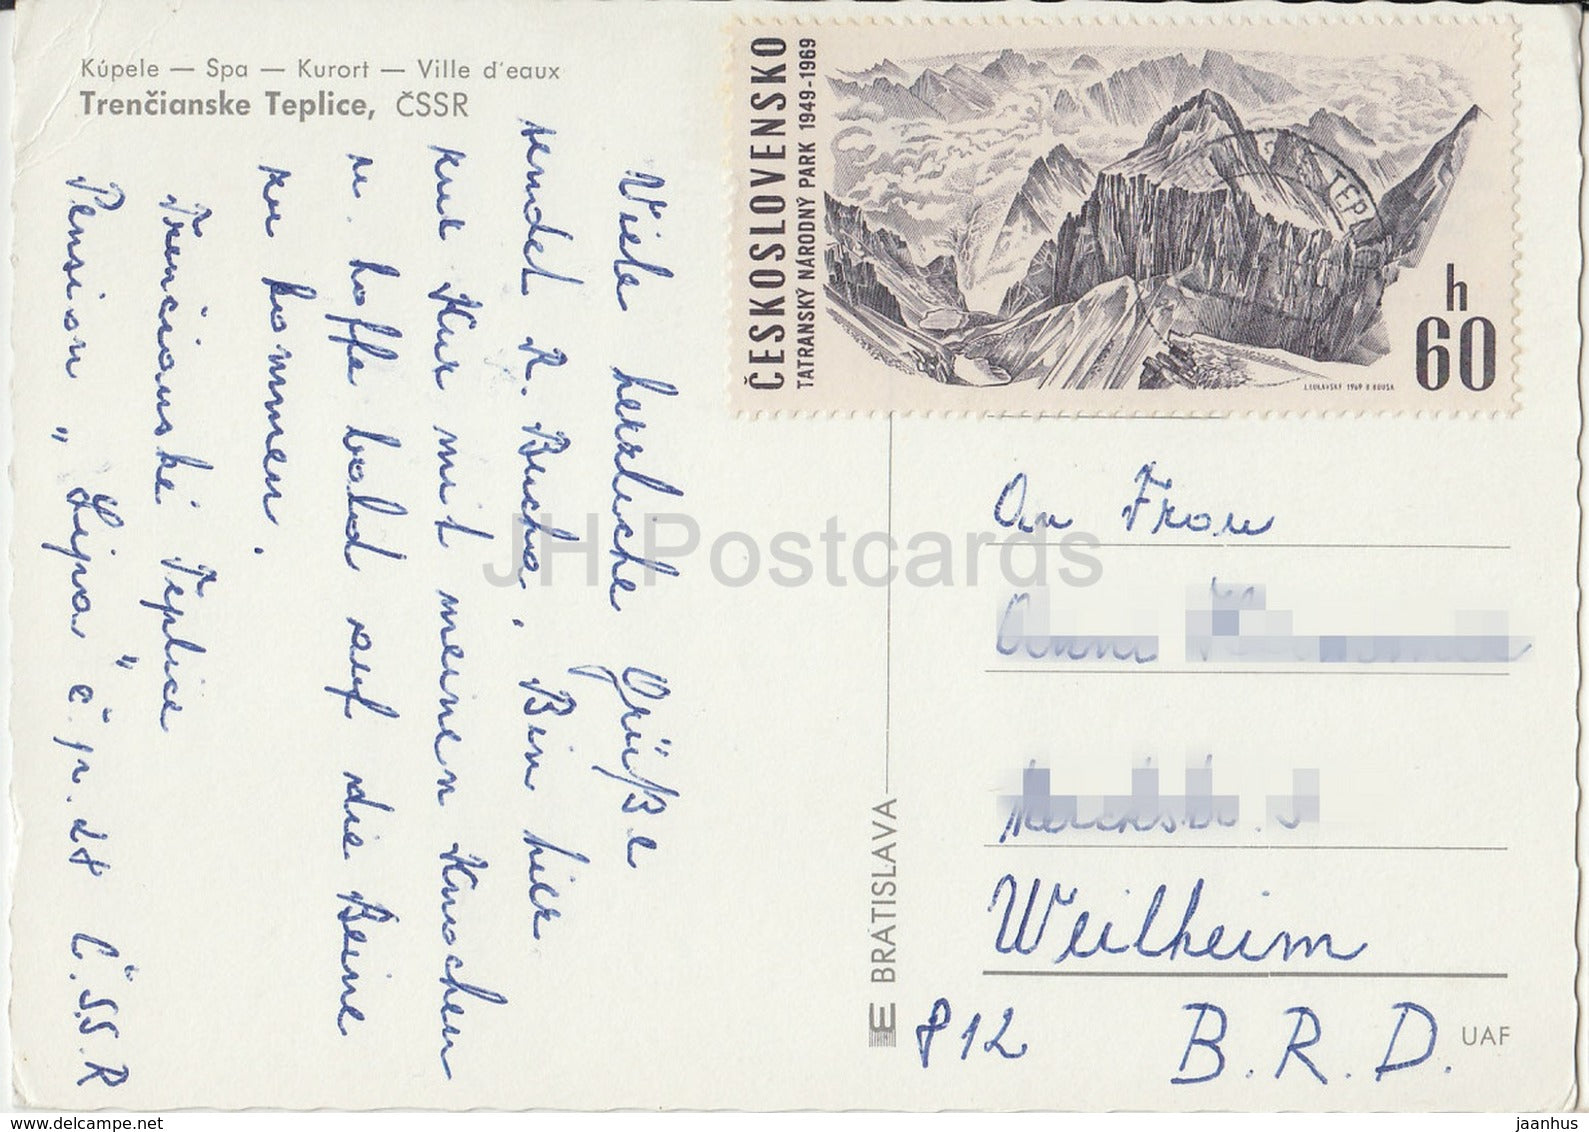 Kúpele — Spa — Kurort — Ville d'eaux
Trenčianske Teplice, ČSSR
Viele herzliche Grüße
sendet R. Bucha. Bin hier
zur Kur mit meinen Knochen
u. hoffe bald auf die Beine
zu kommen.
Trenčianské Teplice
Pension „Lipa" č. p. 27 Č.S.S.R
ČESKOSLOVENSKO
TATRANSKÝ NÁRODNÝ PARK 1949-1969
h
60
J. LUKAVSKÝ 1969 B. HOUSA
TEP
An Frau
Weilheim
812 B.R.D.
UAF
BRATISLAVA
JH Postcards
www.delcampe.net
jaanhus